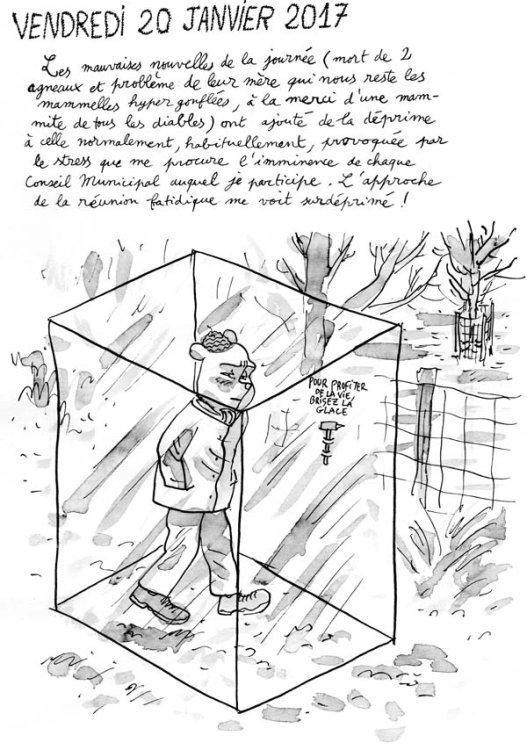 VENDREDI 20 JANVIER 2017
Les mauvaises nouvelles de la journée (mort de 2
agneaux et problème de leur mère qui nous reste les
mammelles hyper gonflées, à la merci d'une mam-
mite de tous les diables) ont ajouté de la déprime
à celle normalement, habituellement, provoquée par
le stress que me procure l'imminence de chaque
Conseil Municipal auquel je participe. L'approche
de la réunion fatidique me voit surdéprimé !
POUR PROFITER
DE LA VIE,
BRISEZ LA
GLACE